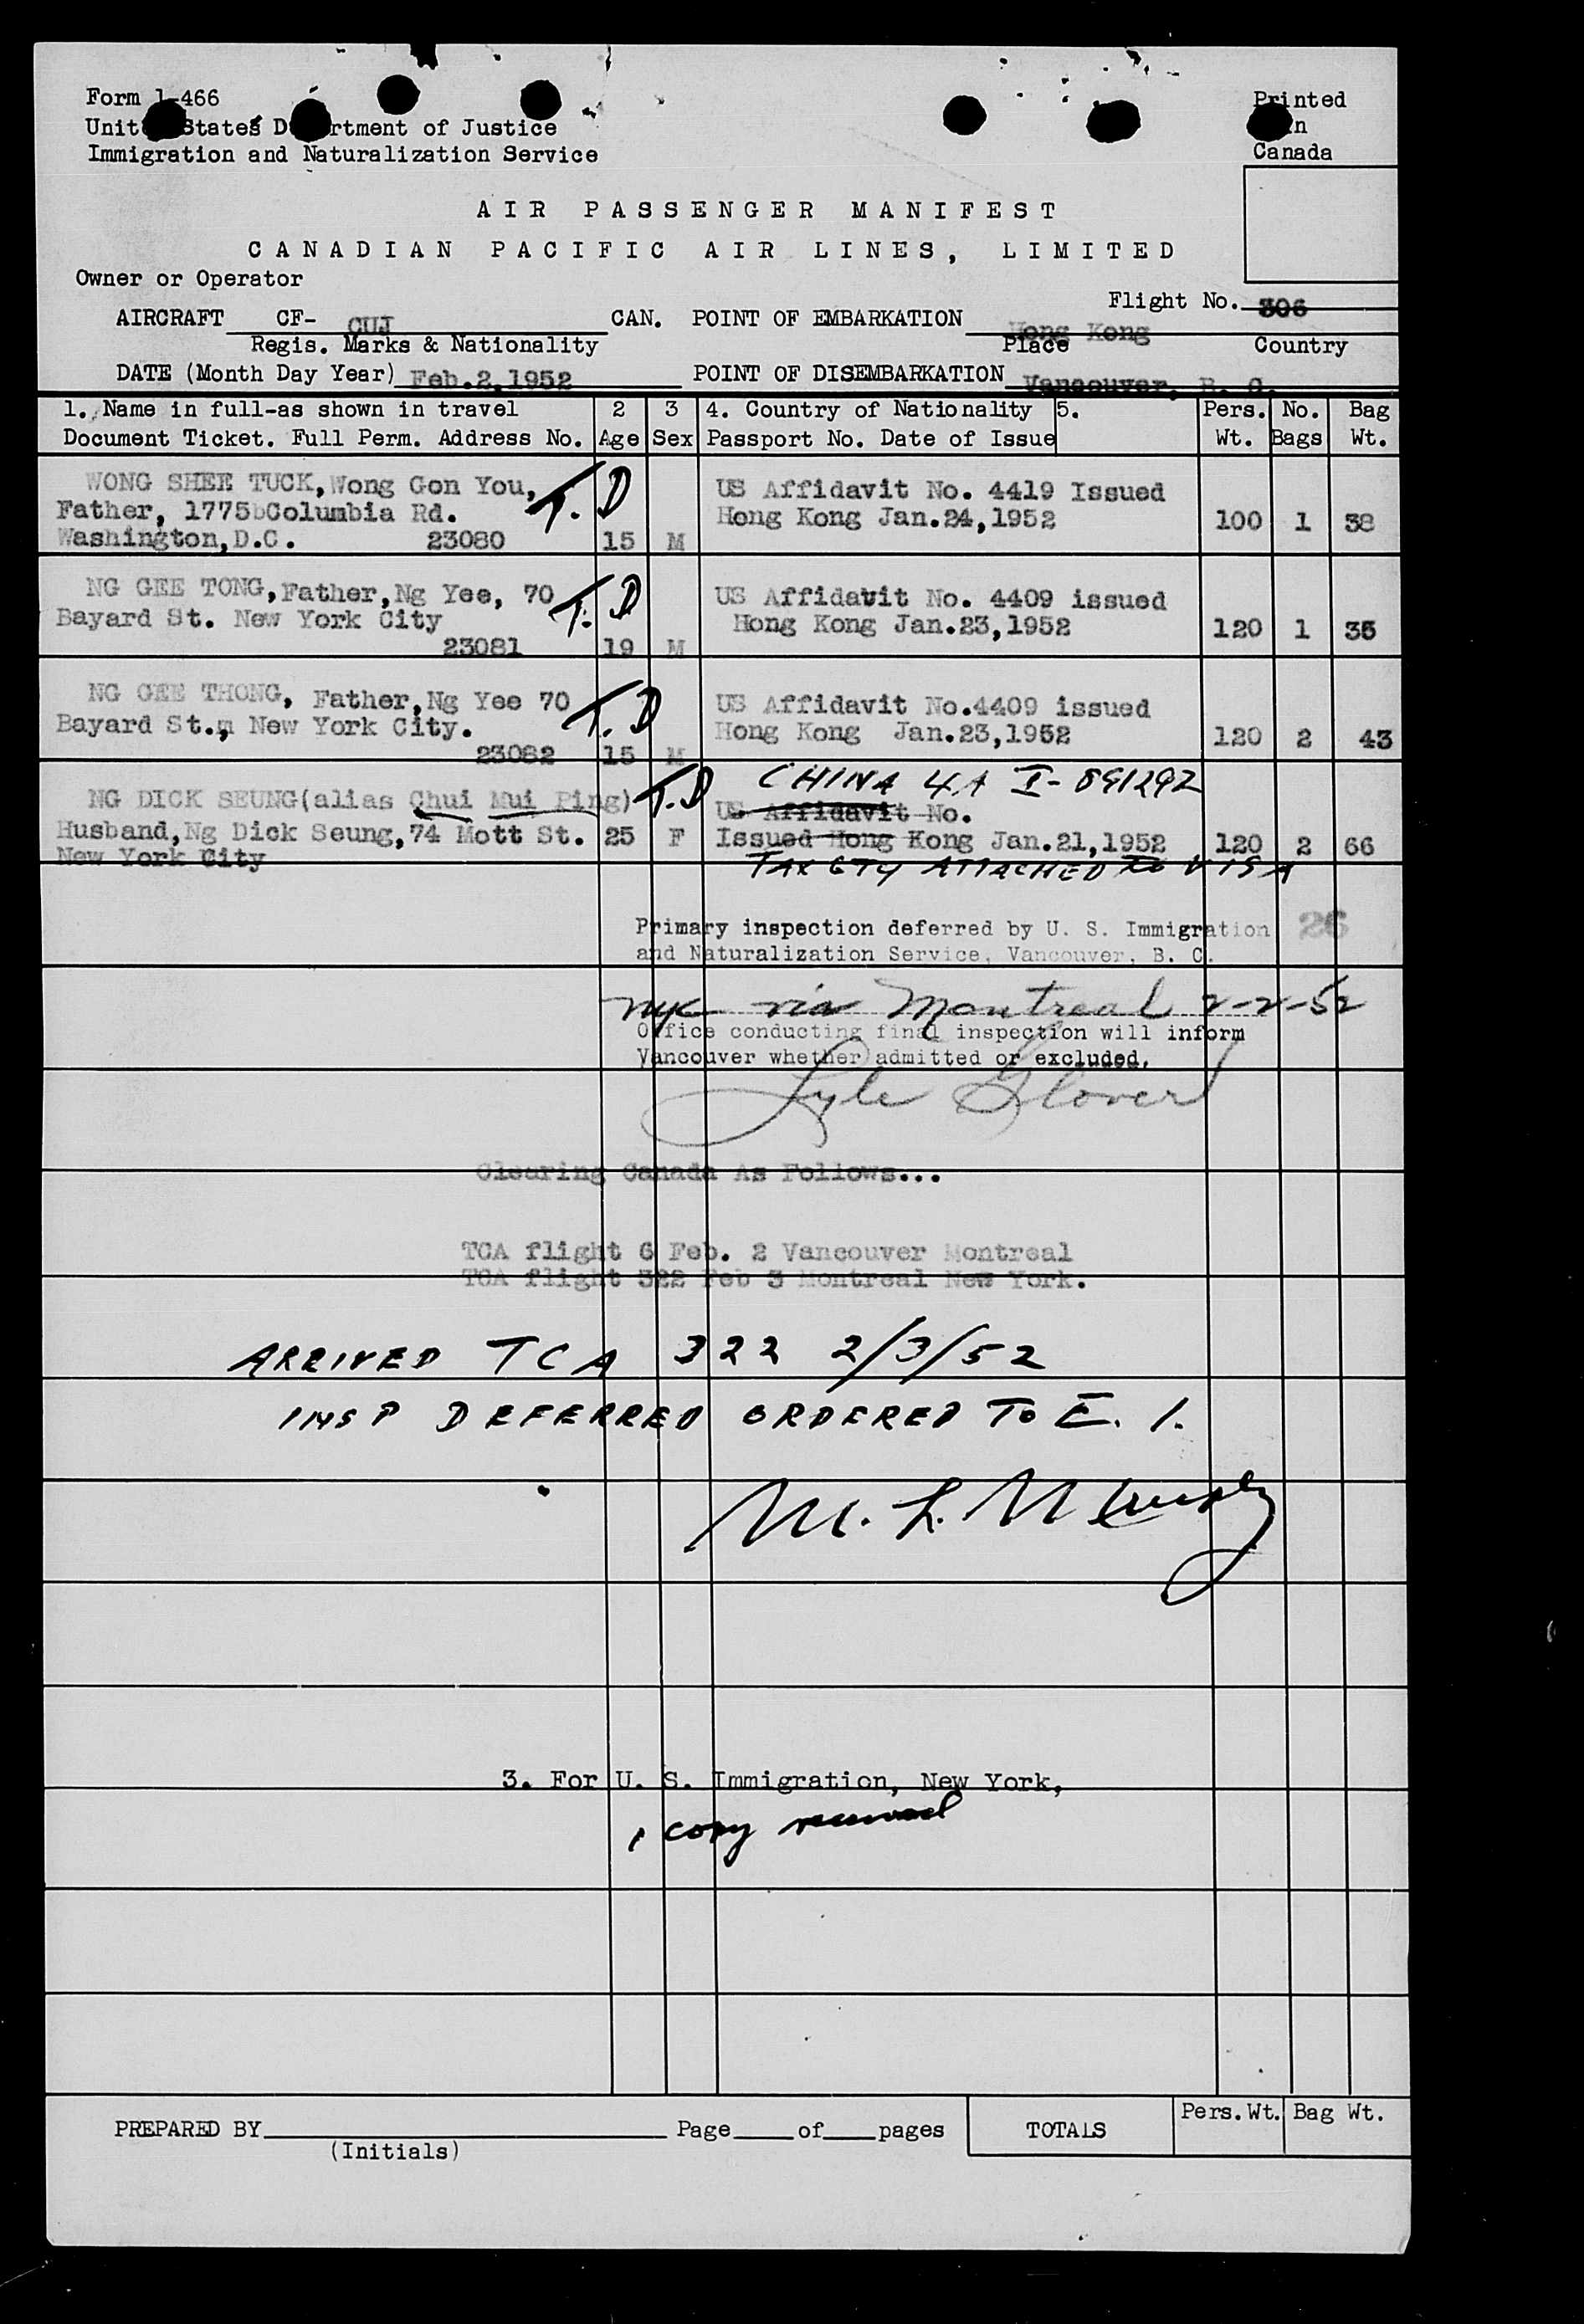 Form 1-466
United States Department of Justice
Immigration and Naturalization Service
Printed
in
Canada
AIR PASSENGER MANIFEST
CANADIAN PACIFIC AIR LINES, LIMITED
Owner or Operator
Flight No. 306
AIRCRAFT CF- CUJ CAN. POINT OF EMBARKATION Hong Kong
Regis. Marks & Nationality Place Country
DATE (Month Day Year) Feb.2,1952 POINT OF DISEMBARKATION Vancouver, B. C.
1. Name in full-as shown in travel 2 3 4. Country of Nationality 5. Pers. No. Bag
Document Ticket. Full Perm. Address No. Age Sex Passport No. Date of Issue Wt. Bags Wt.
WONG SHEE TUCK, Wong Gon You, T.D US Affidavit No. 4419 Issued
Father, 1775bColumbia Rd. Hong Kong Jan.24,1952 100 1 38
Washington,D.C. 23080 15 M
NG GEE TONG, Father, Ng Yee, 70 T.D US Affidavit No. 4409 issued
Bayard St. New York City Hong Kong Jan.23,1952 120 1 35
23081 19 M
NG GEE THONG, Father, Ng Yee 70 T.D US Affidavit No.4409 issued
Bayard St., New York City. Hong Kong Jan.23,1952 120 2 43
23082 15 M
CHINA 4A I-891292
NG DICK SEUNG(alias Chui Mui Ping) T.D US Affidavit No.
Husband, Ng Dick Seung, 74 Mott St. 25 F Issued Hong Kong Jan.21,1952 120 2 66
New York City TAX GTY ATTACHED TO VISA
Primary inspection deferred by U. S. Immigration 26
and Naturalization Service, Vancouver, B. C.
NYC via Montreal 2-2-52
Office conducting final inspection will inform
Vancouver whether admitted or excluded.
Lyle Glover
Clearing Canada As Follows...
TCA flight 6 Feb. 2 Vancouver Montreal
TCA flight 322 Feb 3 Montreal New York.
ARRIVED TCA 322 2/3/52
INSP DEFERRED ORDERED TO E. I.
M. L.
3. For U. S. Immigration, New York,
1 copy received
PREPARED BY Page of pages TOTALS Pers.Wt. Bag Wt.
(Initials)